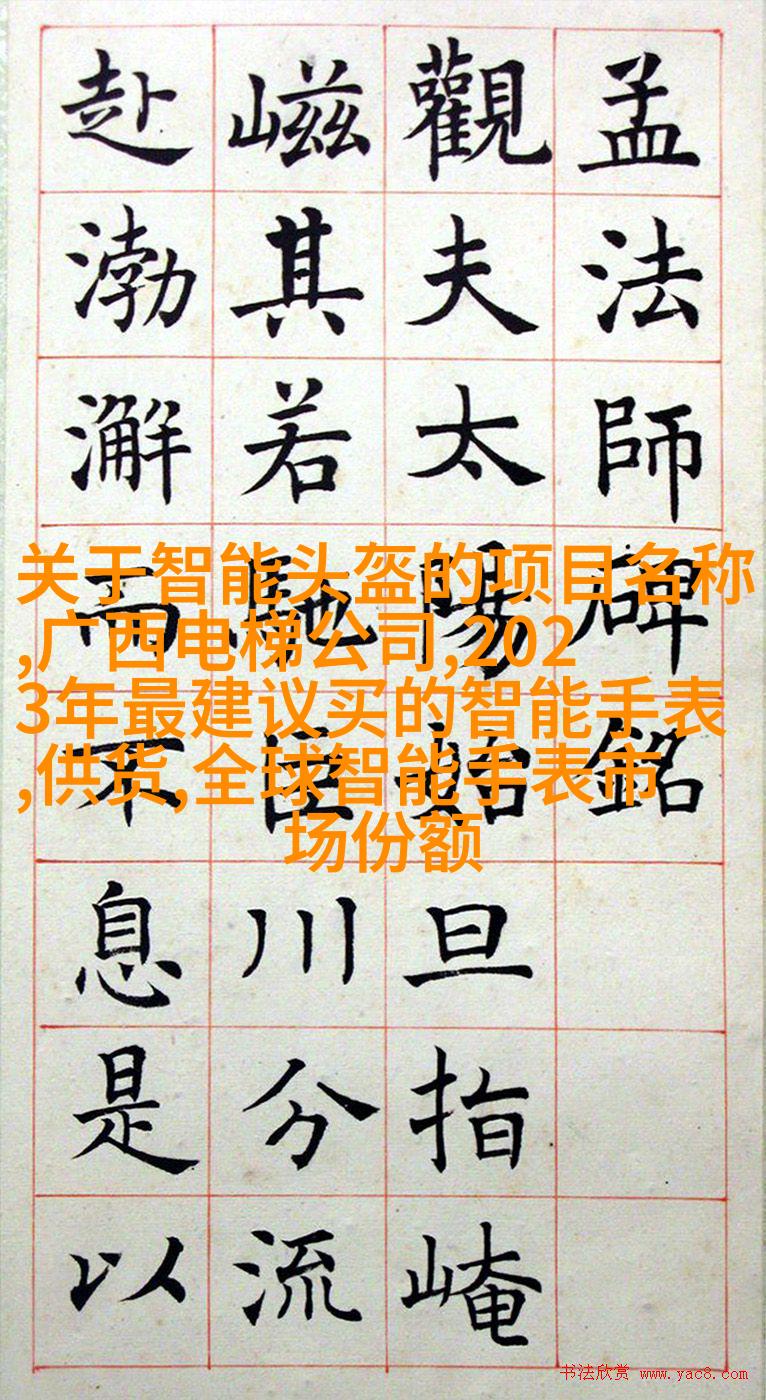 孟法師碑銘
觀夫太陽始旦指崦
嵫其若馳巨川分流
赴渤澥而不息是以
关于智能头盔的项目名称
,广西电梯公司,202
3年最建议买的智能手表
,供货,全球智能手表市
场份额
书法欣赏 www.yac8.com